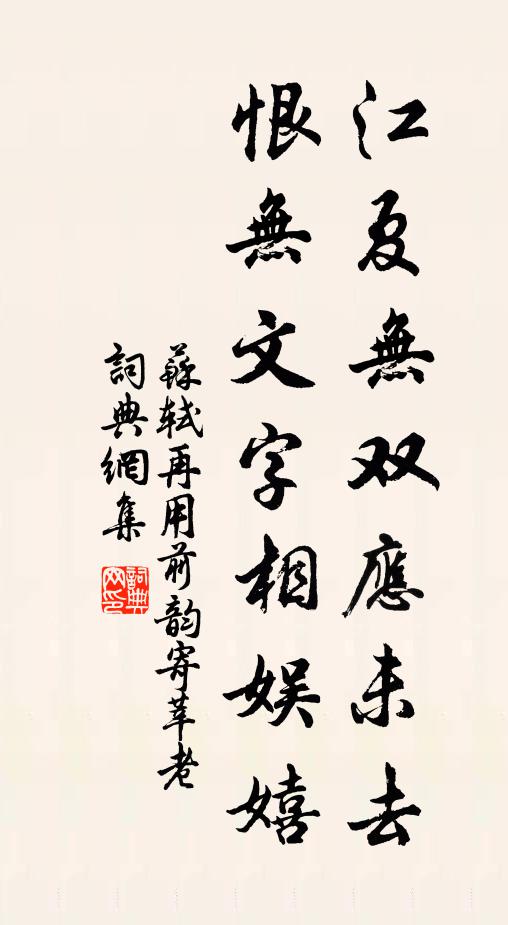 江夏無双應未去
恨無文字相娛嬉
蘇軾再用前韵寄莘老
詞典網集
詞典網印